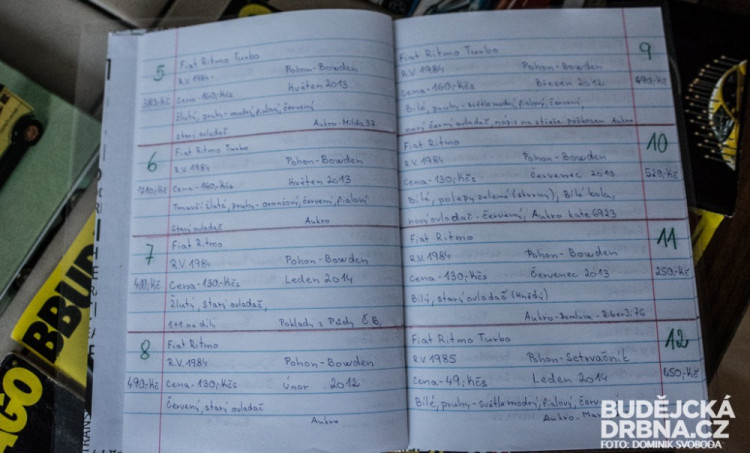 5
Fiat Ritmo Turbo
R.V. 1984 Pohon-Bowden
Cena-160,-Kčs Květen 2013
Žlutý, pruhy-modrý, fialový, červený
starý ovladač Aukro-Milda37
6
Fiat Ritmo Turbo
R.V. 1984 Pohon-Bowden
Cena-160,-Kčs Květen 2013
Tmavší žlutá, pruhy-oranžový, červený, fialový
starý ovladač Aukro
7
Fiat Ritmo
R.V. 1984 Pohon-Bowden
Cena-130,-Kčs Leden 2014
Žlutý, starý ovladač,
1+1 na díly Poklady z Půdy Č.B.
8
Fiat Ritmo
R.V. 1984 Pohon-Bowden
490,-Kč Cena-130,-Kčs Únor 2012
Červený, starý ovladač
Aukro
9
Fiat Ritmo Turbo
R.V. 1984 Pohon-Bowden
Cena-160,-Kčs Březen 2012
Bílé, pruhy-světle modrý, fialový, červený,
nový černý ovladač, na střeše poškozen Aukro
10
Fiat Ritmo
R.V. 1984 Pohon-Bowden
Cena-130,-Kčs Červenec 2013 529,-Kč
Bílý, polepy zelené, Bílé kola,
nový ovladač-červený, Aukro kate6923
11
Fiat Ritmo
R.V. 1984 Pohon-Bowden
Cena-130,-Kčs Červenec 2013 250,-Kč
Bílý, starý ovladač (Hnědý)
Aukro
12
Fiat Ritmo Turbo
R.V. 1985 Pohon-Setrvačník
Cena-49,-Kčs Leden 2014 450,-Kč
Bílé, pruhy-světle modrý, fialový,
Aukro
BBUR
AGO
BUDĚJCKÁ
DRBNA.CZ
FOTO: DOMINIK SVOBODA